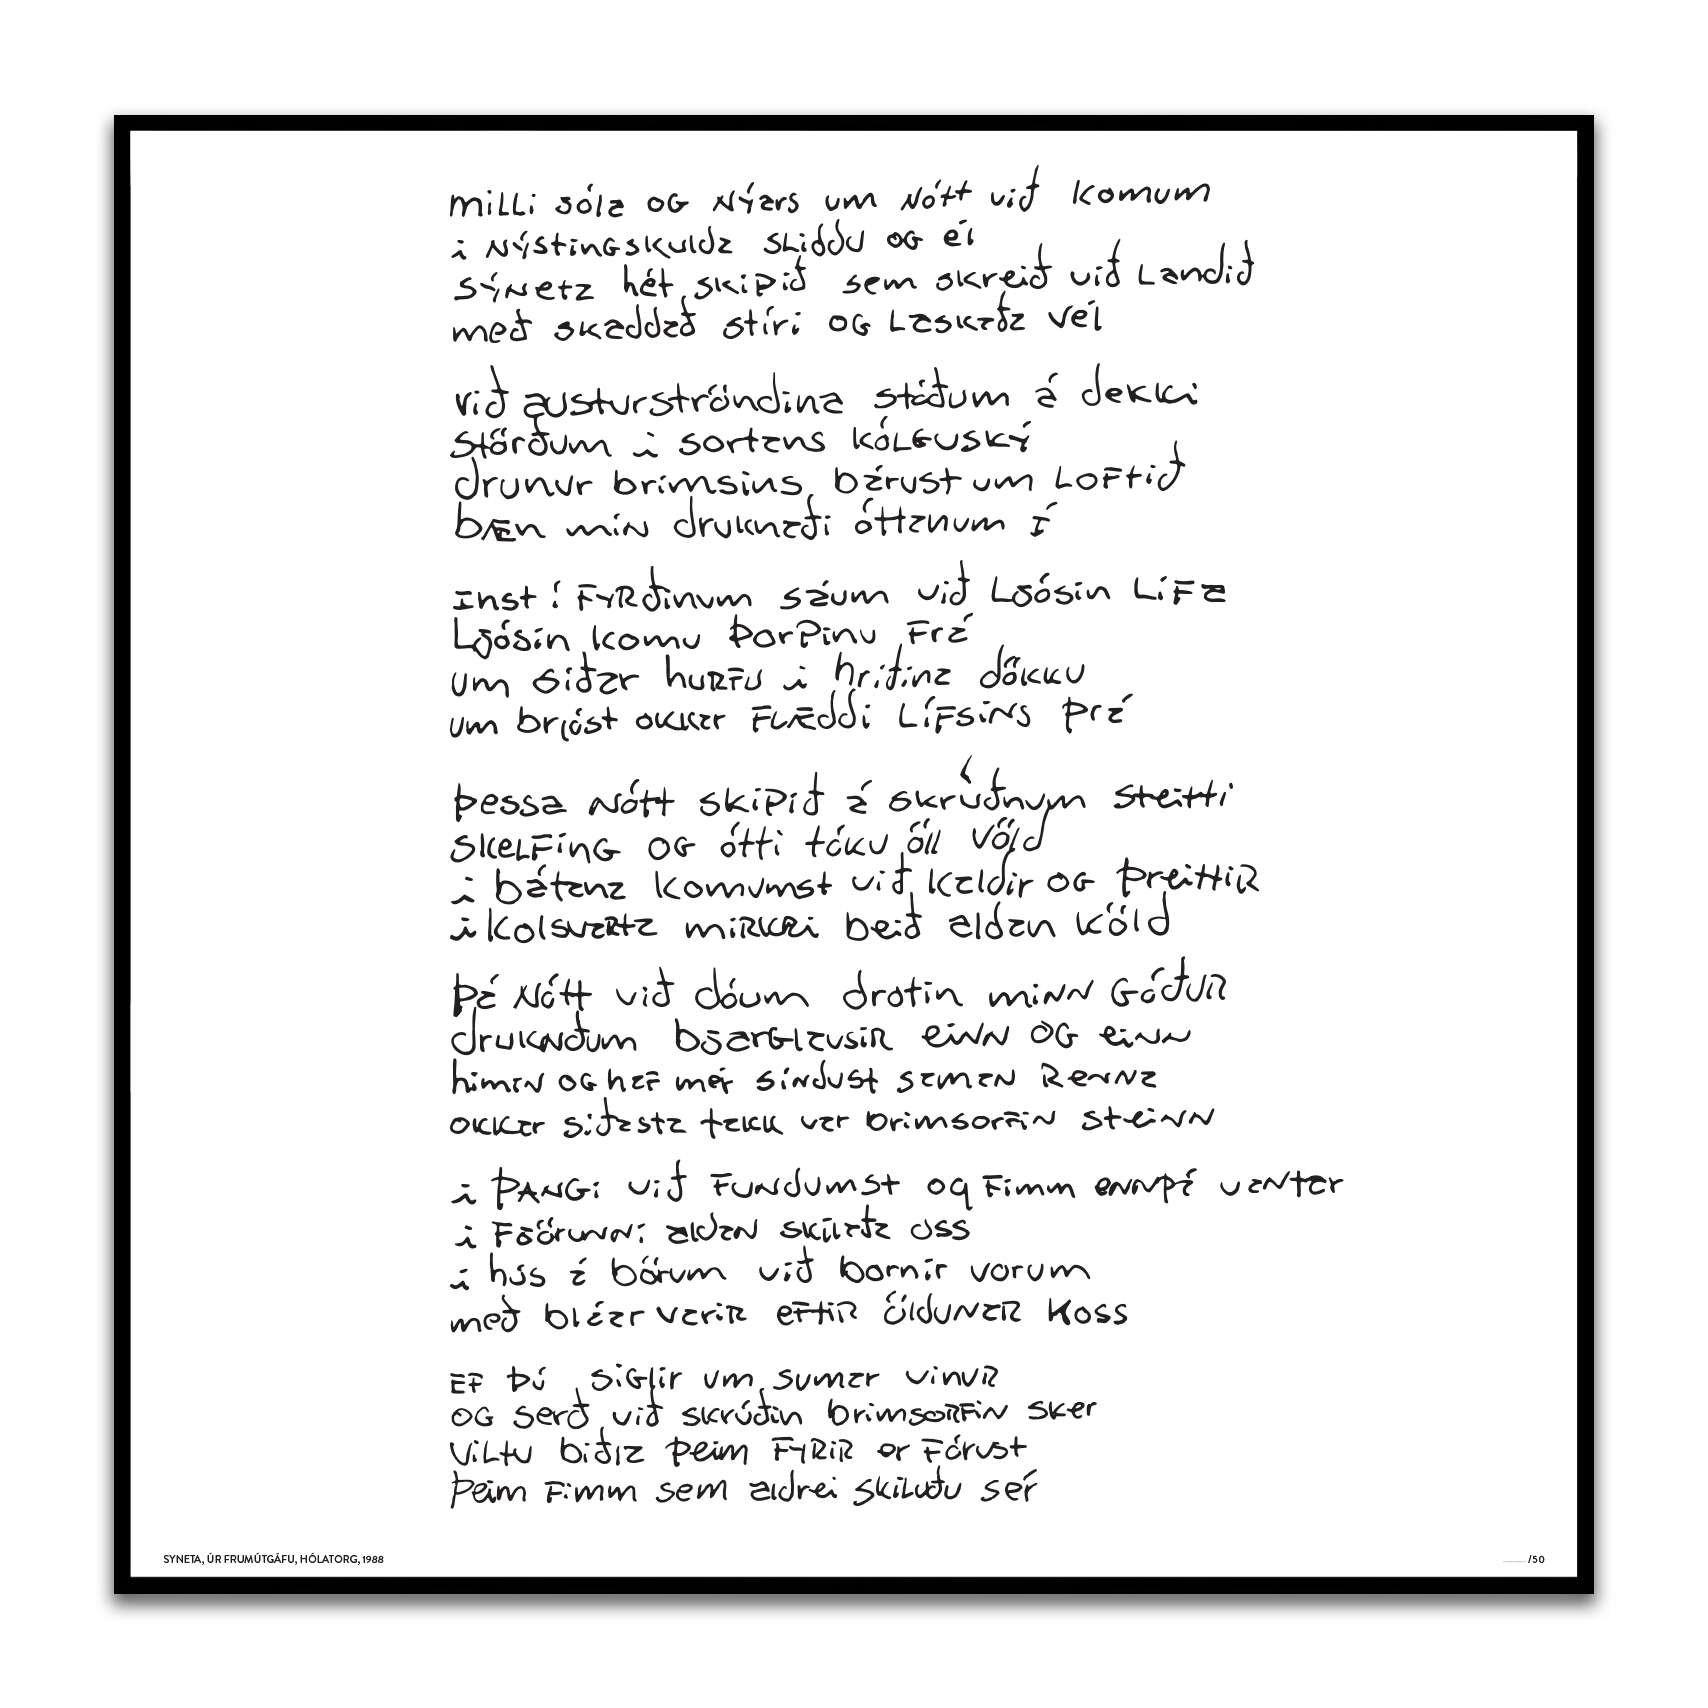 milli jóla og Nýárs um Nótt við komum
i Nýstingskulda sliddu og él
sýneta hét skipið sem skreið við Landið
með skaddað stíri og Laskaða vél
við austurströndina stóðum á dekki
störðum i sortans kólguský
drunur brimsins bárust um Loftið
bæn mín druknaði óttanum í
inst í FyRðinum sáum við Ljósin LíFa
Ljósin komu ÞorPinu Frá
um síðar huRFu i hríðina dökku
um brjóst okkar FLæddi LíFsins þrá
þessa Nótt skipið á skrúðnum steitti
skeLFing og ótti tóku öll völd
i bátana komumst við kaldir og þreittiR
i kolsvaRta miRkRi beið aldan köld
þá Nótt við dóum drotin minn GóðuR
druknðum bjarglausiR einn OG einn
himin og haF mér sindust saman Renna
okkar síðasta takk var brimsorFin steinn
i ÞANGi við Fundumst og Fimm ennþá vantar
i Fjörunni aldan skilaða oss
i hús á börum við bornir vorum
með bláar variR eFtiR öldunaR koss
EF þú siGlir um sumar vinuR
OG serð við skrúðin brimsoRFin sker
viLtu biðja þeim FyRiR er Fórust
þeim Fimm sem aldrei skiluðu sér
SYNETA, ÚR FRUMÚTGÁFU, HÓLATORG, 1988
/50